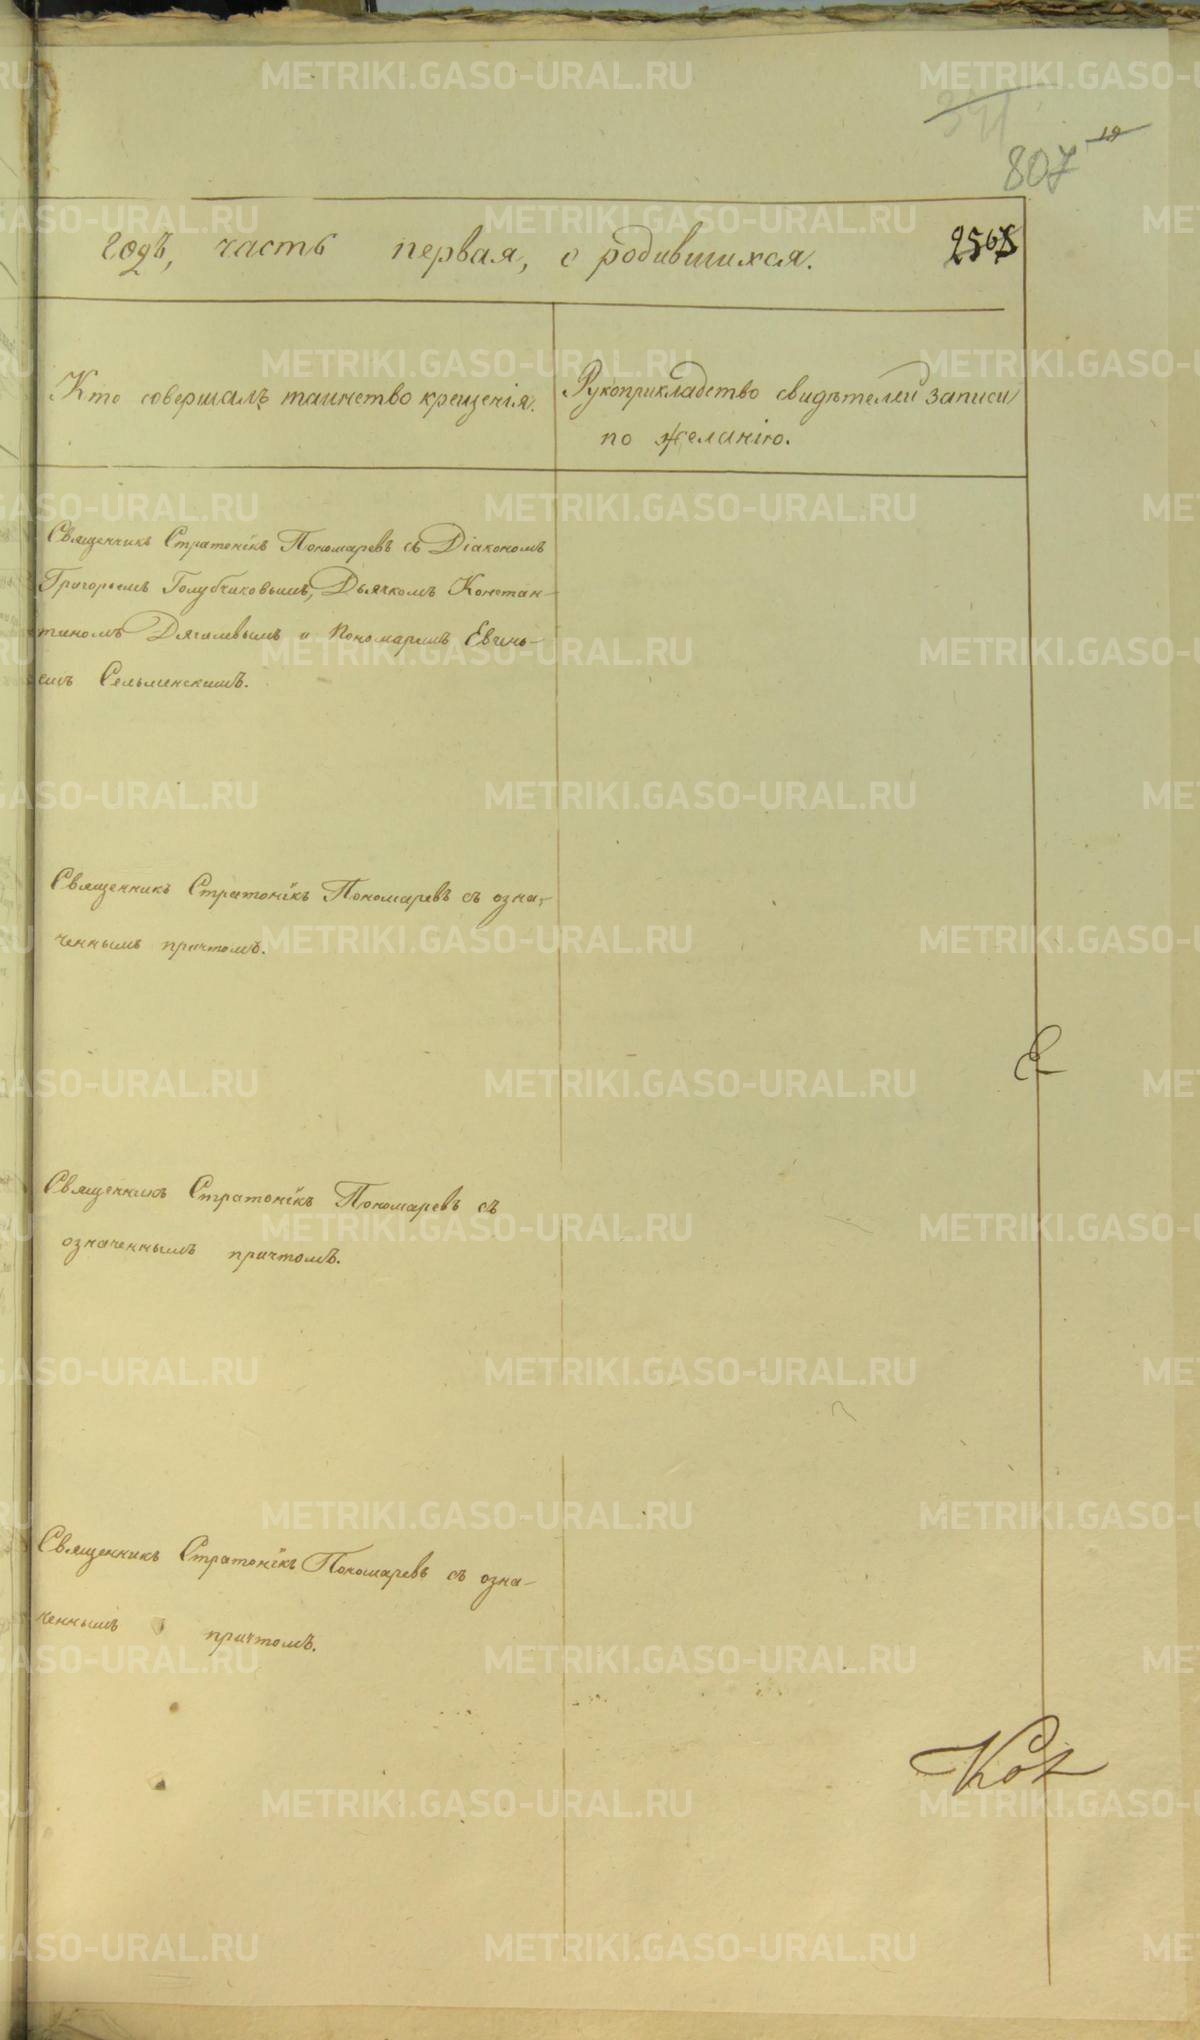 807
годъ, часть первая, о родившихся.
Кто совершалъ таинство крещенія.
Рукоприкладство свидѣтелей записи
по желанію.
Священникъ Стратоникъ Пономаревъ съ Діакономъ
Григорьемъ Голубчиковымъ, Дьячкомъ Констан-
тиномъ Дягилевымъ и Пономаремъ
Сельменскимъ.
Священникъ Стратоникъ Пономаревъ съ озна-
ченнымъ причтомъ.
Священникъ Стратоникъ Пономаревъ съ
означеннымъ причтомъ.
Священникъ Стратоникъ Пономаревъ съ озна-
ченнымъ причтомъ.
METRIKI.GASO-URAL.RU